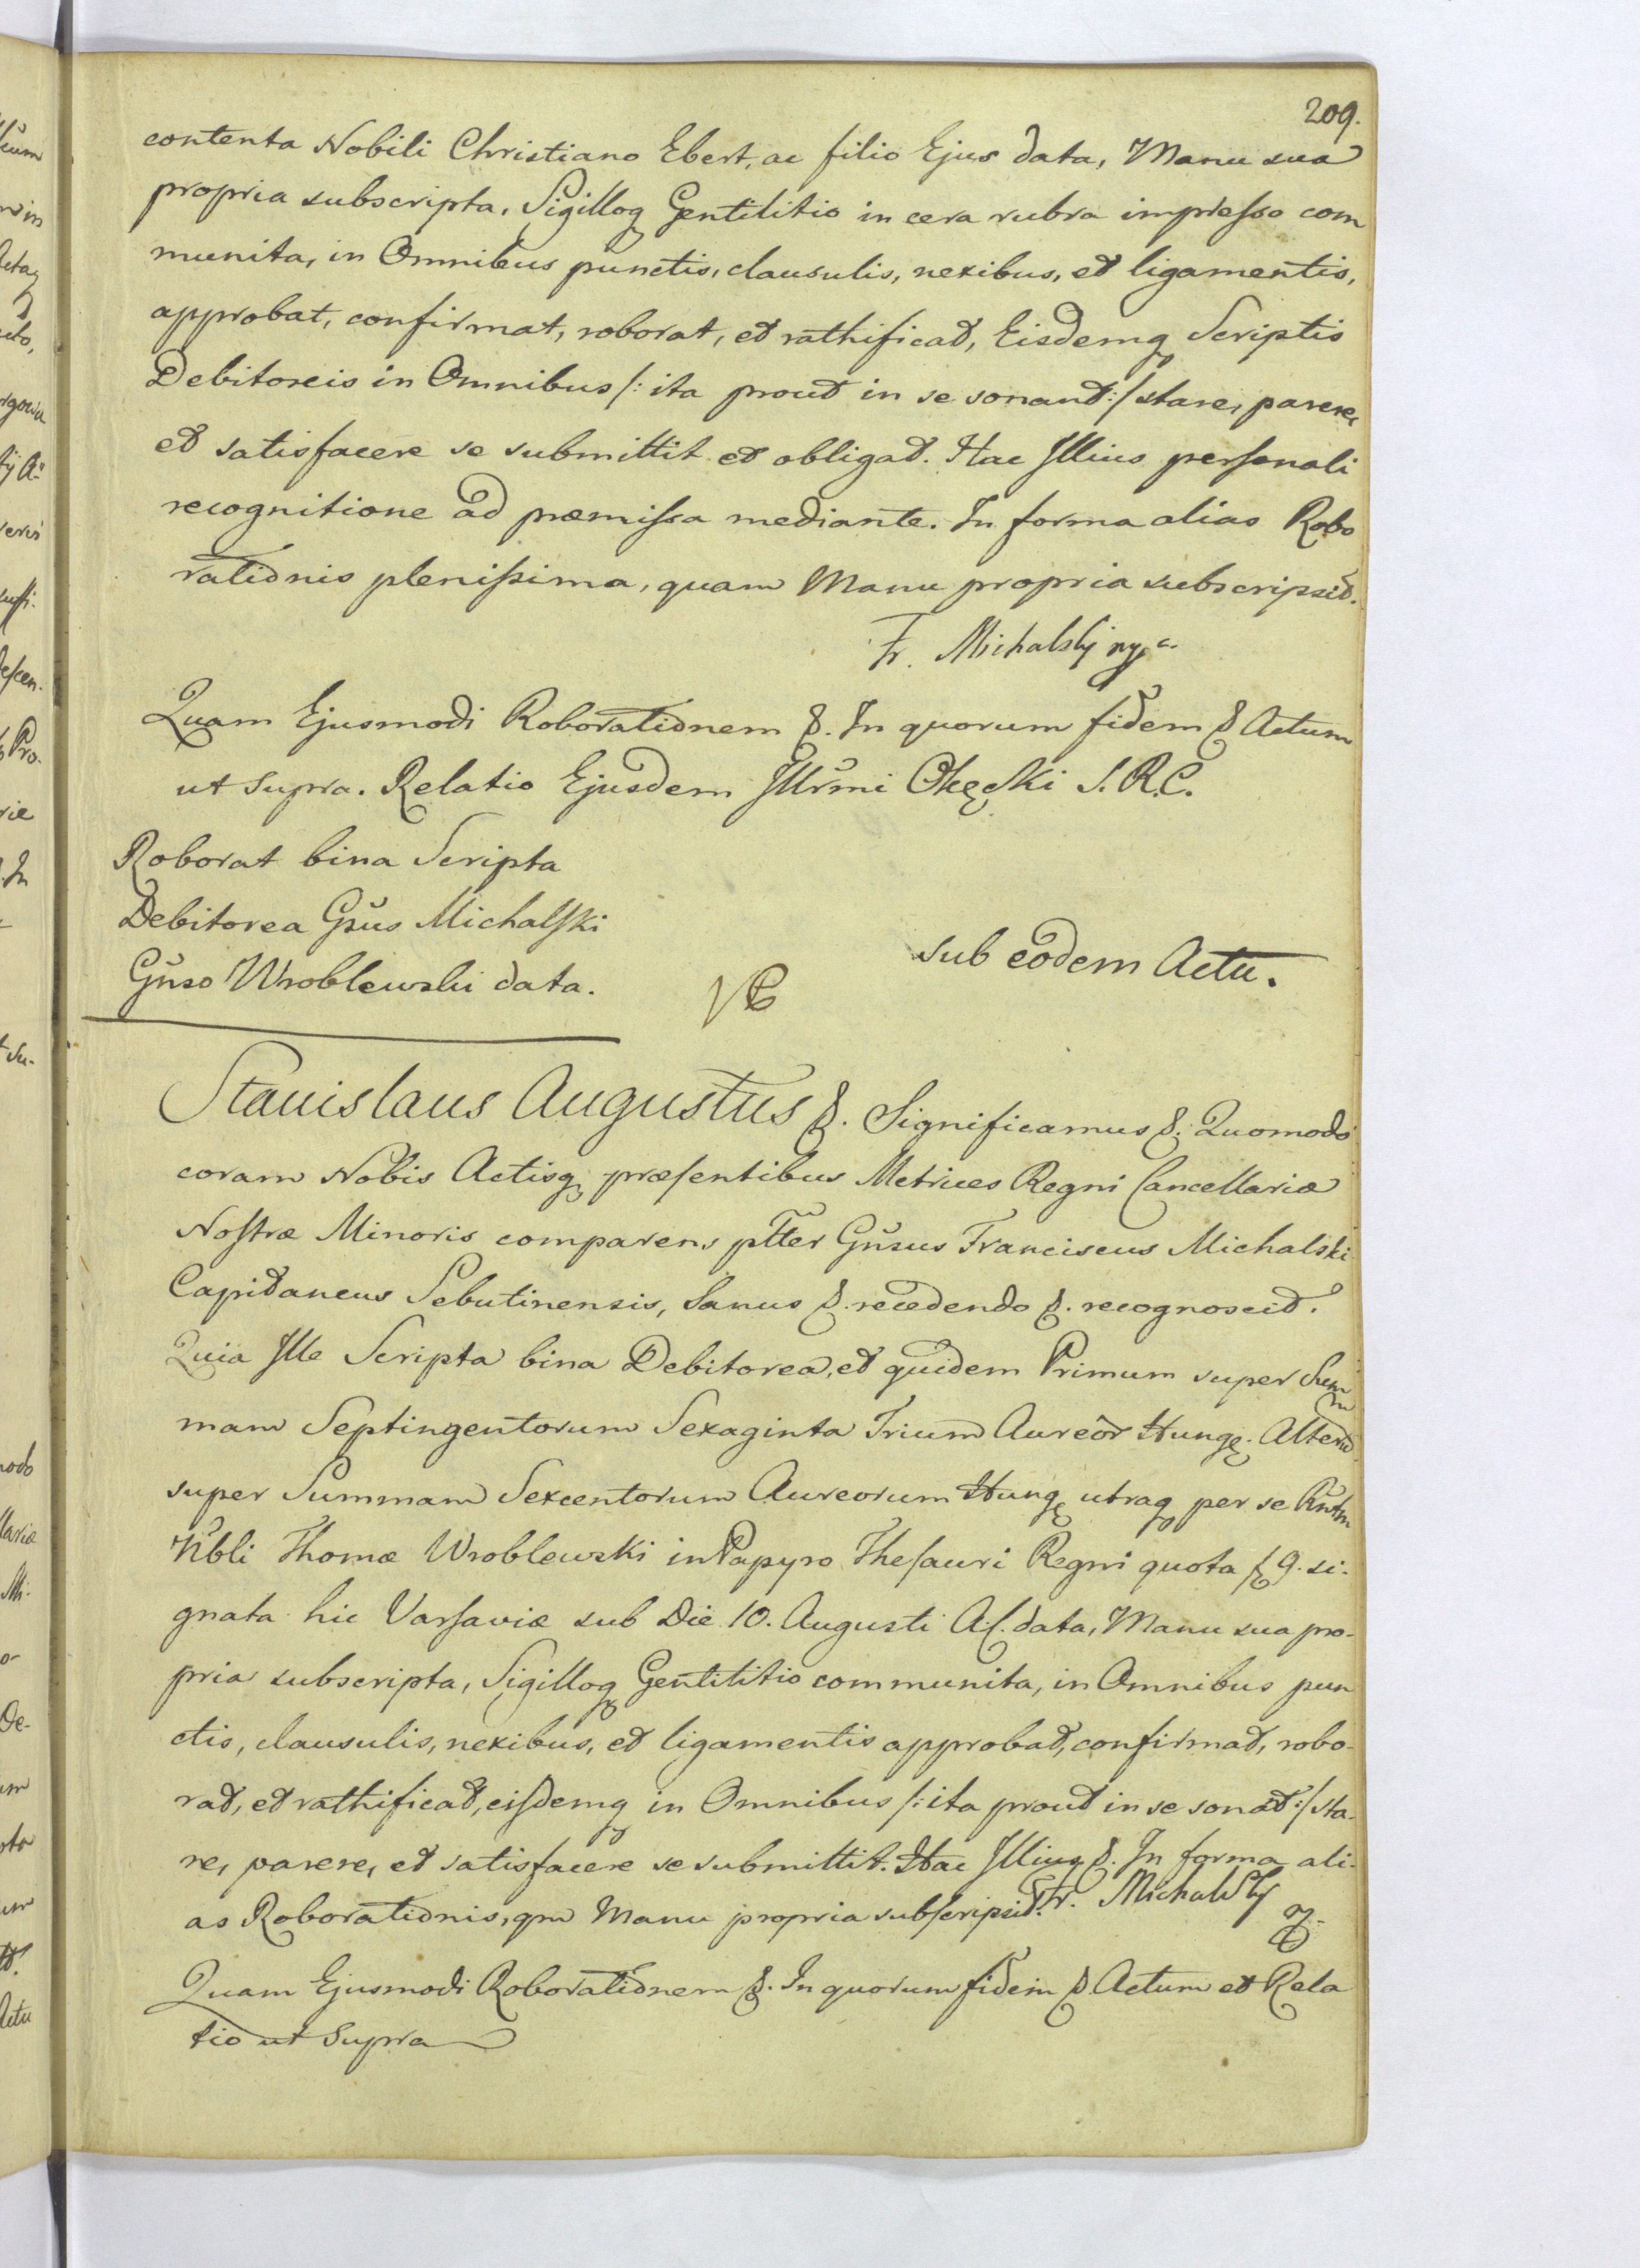 209.
contenta Nobili Christiano Ebert, ac filio Ejus data, Manu sua
propria subscripta, Sigilloq Gentilitio in cera rubra impresso com
munita, in Omnibus punctis, clausulis, nexibus, et ligamentis,
approbat, confirmat, roborat, et rathificat, Eisdemq Scriptis
Debitoreis in Omnibus /: ita prout in se sonant :/ stare, parere,
et satisfacere se submittit et obligat. Hac Illius personali
recognitione ad præmissa mediante. In forma alias Robo
rationis plenissima, quam Manu propria subscripsit.
Fr. Michalsky
Quam Ejusmodi Roborationem &. In quorum fidem & Actum
ut Supra. Relatio Ejusdem Illrmi Okęcki S.R.C.
Roborat bina Scripta
Debitorea Gsus Michalski
Gnso Wroblewski data.
sub eodem Actu.
Stanislaus Augustus &. Significamus &. Quomodo
coram Nobis Actisq præsentibus Metrices Regni Cancellariæ
Nostræ Minoris comparens pltter Gnsus Franciscus Michalski
Capitaneus Sebutinensis, Sanus &. recedendo &. recognoscit.
Quia Ille Scripta bina Debitorea, et quidem Primum super Sum
mam Septingentorum Sexaginta Trium Aureor Hung. Alterũ
super Summam Sexcentorum Aureorum Hung utraq per se Rntm
Nbli Thomæ Wroblewski in Papyro Thesauri Regni quota f 9. si-
gnata hic Varsaviæ sub Die 10. Augusti A.C. data, Manu sua pro-
pria subscripta, Sigilloq Gentilitio communita, in Omnibus pun
ctis, clausulis, nexibus, et ligamentis approbat, confirmat, robo-
rat, et rathificat, eisdemq in Omnibus /: ita prout in se sonãt :/ sta-
re, parere, et satisfacere se submittit. Hac Illius &. In forma ali-
as Roborationis, qm Manu propria subscripsit. Fr. Michalsky
Quam Ejusmodi Roborationem &. In quorum fidem & Actum et Rela
tio ut Supra